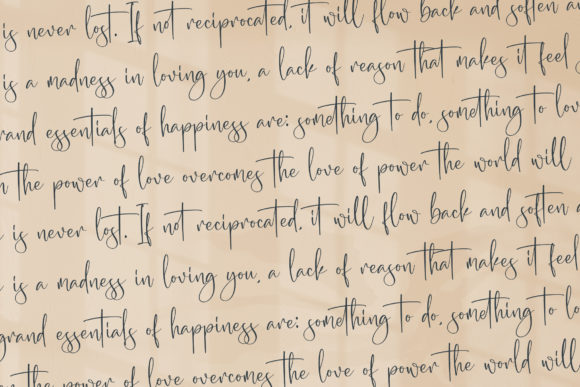 is never lost. If not reciprocated, it will flow back and soften an
is a madness in loving you, a lack of reason that makes it feel
grand essentials of happiness are: something to do, something to lov
the power of love overcomes the love of power the world will
is never lost. If not reciprocated, it will flow back and soften a
is a madness in loving you, a lack of reason that makes it feel
grand essentials of happiness are: something to do, something to lo
the power of love overcomes the love of power the world will